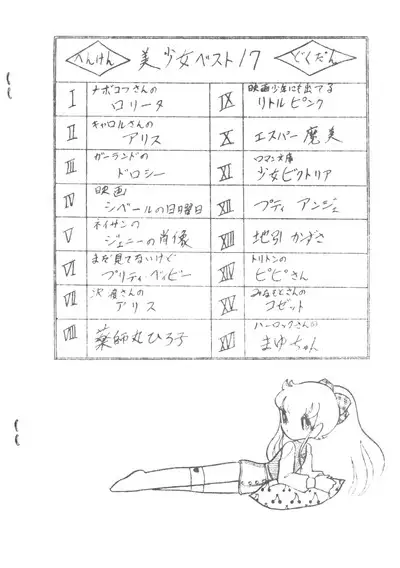 へんけん
美少女ベスト17
どくだん
I
ナボコフさんの
ロリータ
II
キャロルさんの
アリス
III
ガーランドの
ドロシー
IV
映画
シベールの日曜日
V
ネイサンの
ジェニーの肖像
VI
まだ見てないけど
プリティ・ベイビー
VII
沢渡さんの
アリス
VIII
薬師丸ひろ子
IX
映画少年にも出てる
リトルピンク
X
エスパー魔美
XI
ロマン文庫
少女ビクトリア
XII
プティアンジェ
XIII
地引かずさ
XIV
トリトンの
ピピさん
XV
みなもとさんの
コゼット
XVI
ハーロックさんの
まゆちゃん